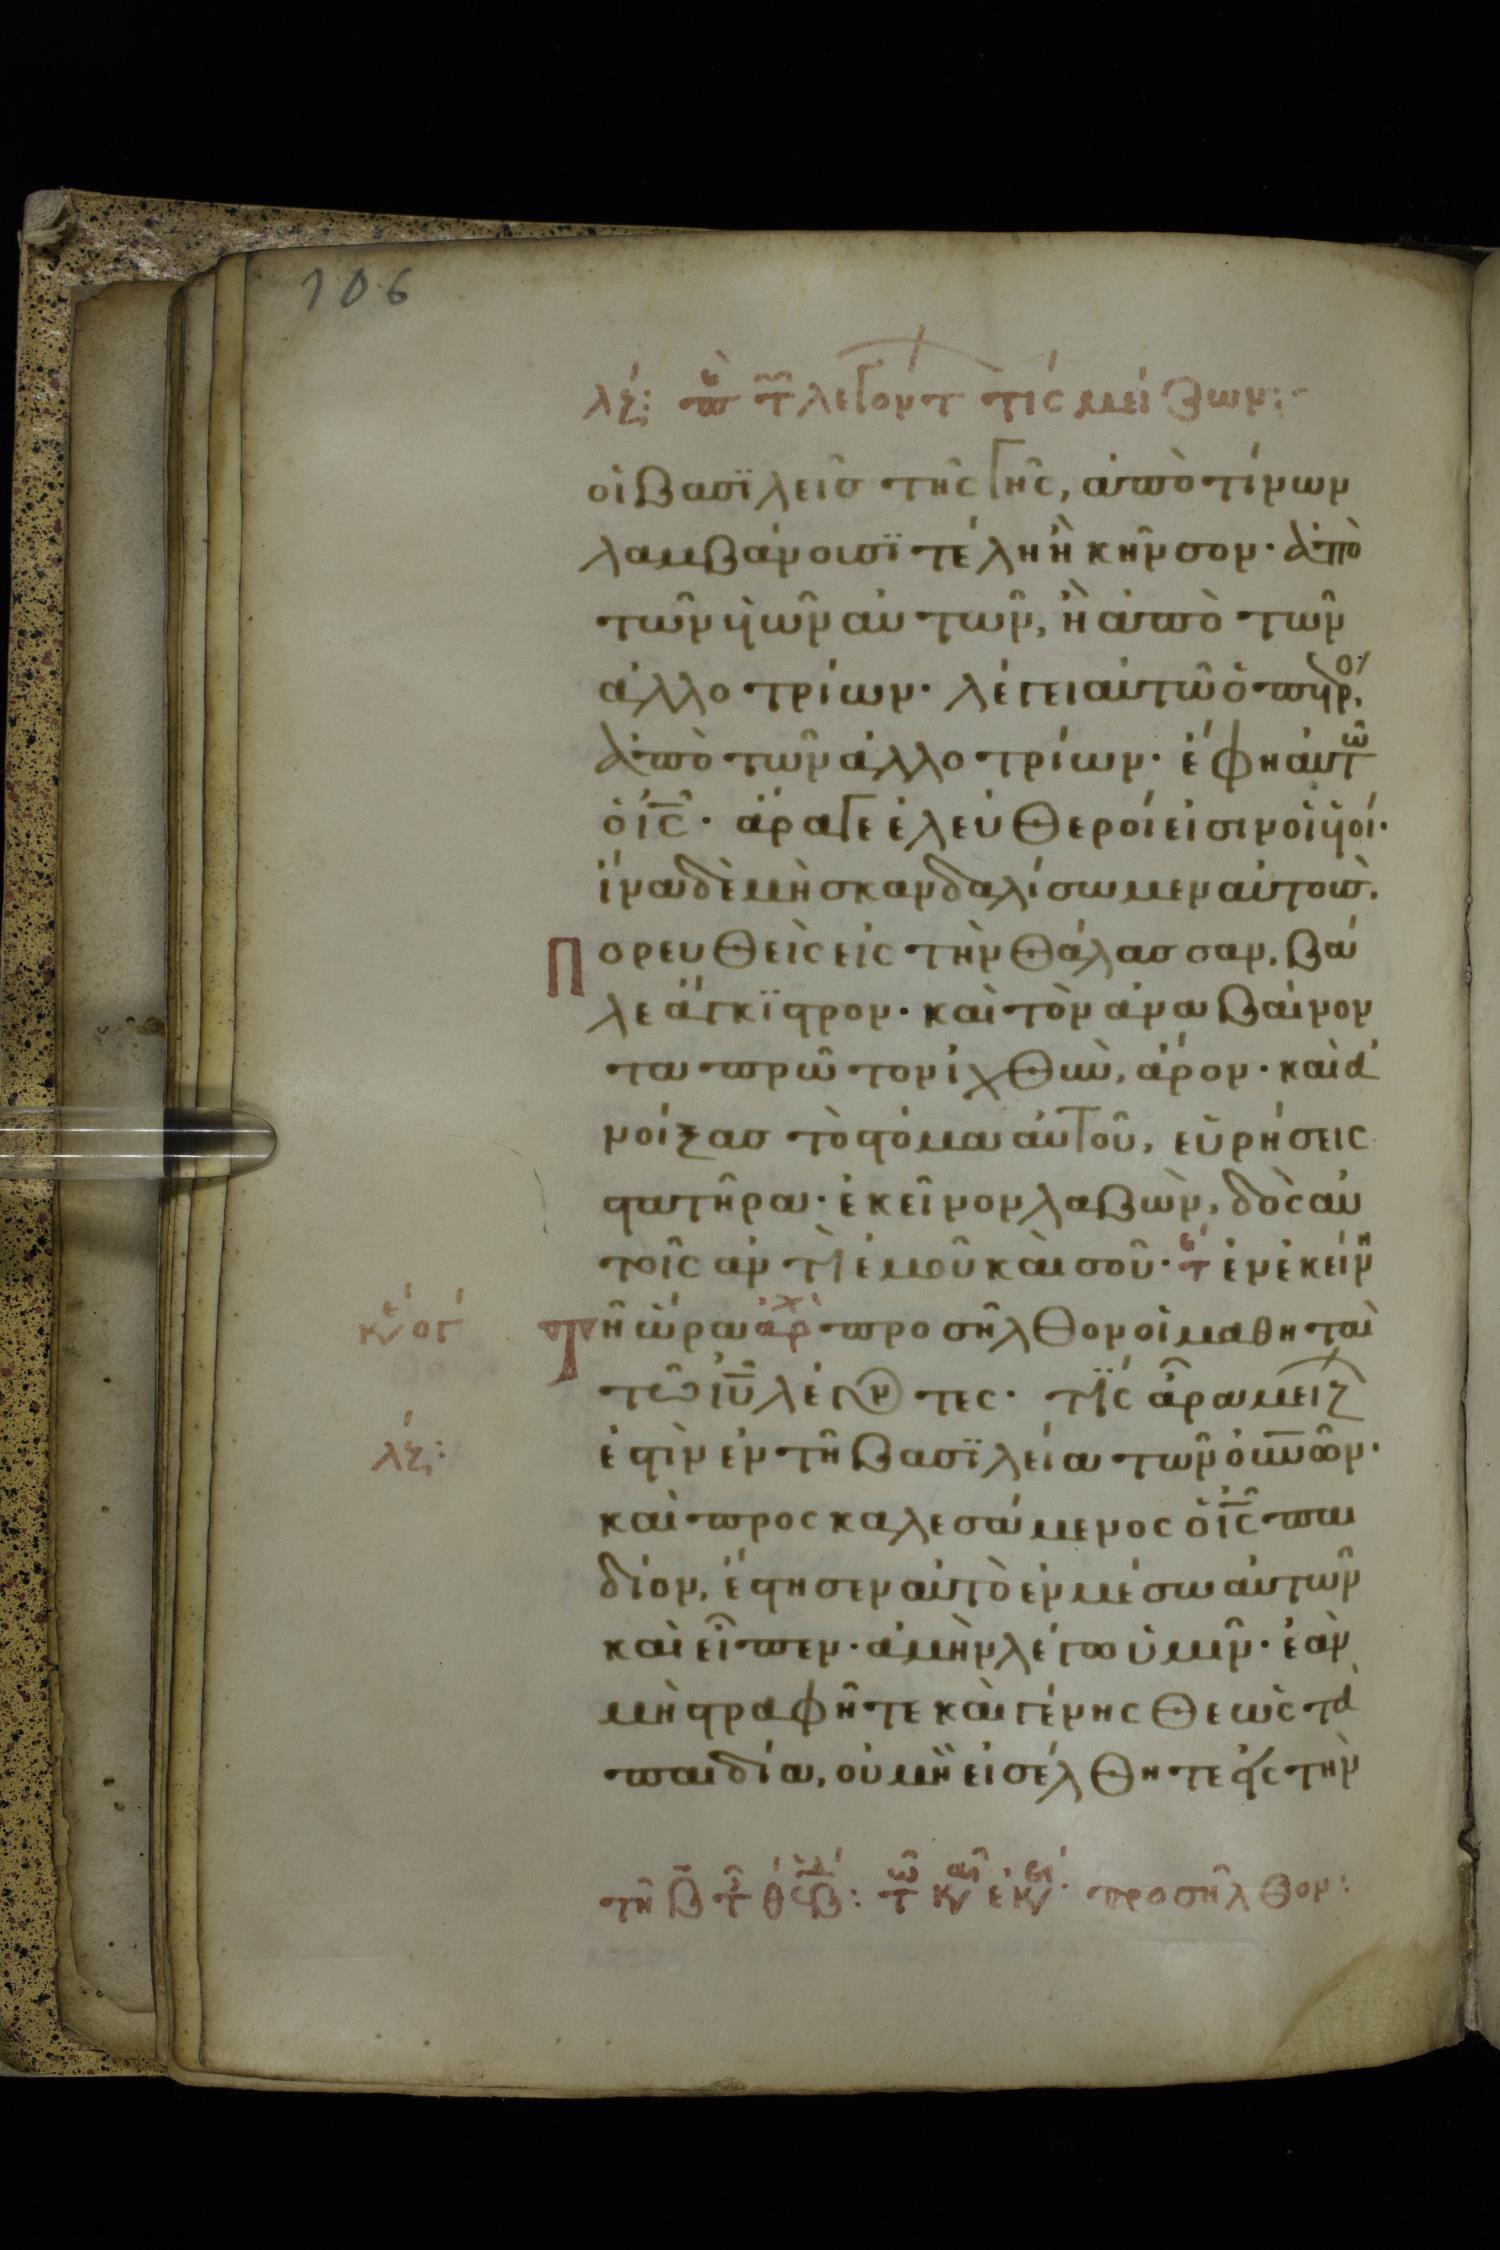 106
λϛ: π τ λεγοντ τίς μείζων:
οἱ βασϊλεῖσ τῆς γῆς, ἀπὸ τίνων
λαμβάνουσϊ τέλη ἢ κῆνσον· ἀπὸ
τῶν ὑῶν αὐτῶν, ἢ ἀπὸ τῶν
ἀλλοτρίων· λέγει αὐτῶ ὁ πετρ,
ἀπὸ τῶν ἀλλοτρίων· ἔφη αὐτῶ
ὁ ἰς̅· ἄραγε ἐλεύθεροί εἰσιν οἱ ὑοί·
ἵνα δὲ μὴ σκανδαλίσωμεν αὐτοὺσ.
Πορευθεὶς εἰς τὴν θάλασσαν, βά
λε ἄγκϊστρον· καὶ τὸν ἀναβαίνον
τα πρῶτον ἰχθὺν, ἄρον· καὶ ἀ
νοίξασ τὸ στόμα αὐτοῦ, εὑρήσεις
στατῆρα· ἐκεῖνον λαβὼν, δὸς αὐ
τοῖς ἀντὶ ἐμοῦ καὶ σοῦ· τ ἐν ἐκείνη
κν ογ Τῆ ὥρα ἀρχ προσῆλθον οἱ μαθηταὶ
τῶ ἰυ̅ λέγοντες· τΐς ἄρα μείζ
λϛ: ἐστὶν ἐν τῆ βασϊλεία τῶν οὐνῶν·
καὶ προσκαλεσάμενος ὁ ἰς̅ παι
δίον, ἔστησεν αὐτὸ ἐν μέσω αὐτῶν
καὶ εἶπεν· ἀμὴν λέγω ὑμῖν· ἐὰν
μὴ στραφῆτε καὶ γένησθε ὡς τὰ
παιδία, οὐ μὴ εἰσέλθητε εἰς τὴν
τῆ β τ θ εβ: τῶ κν ἐκν προσῆλθον: